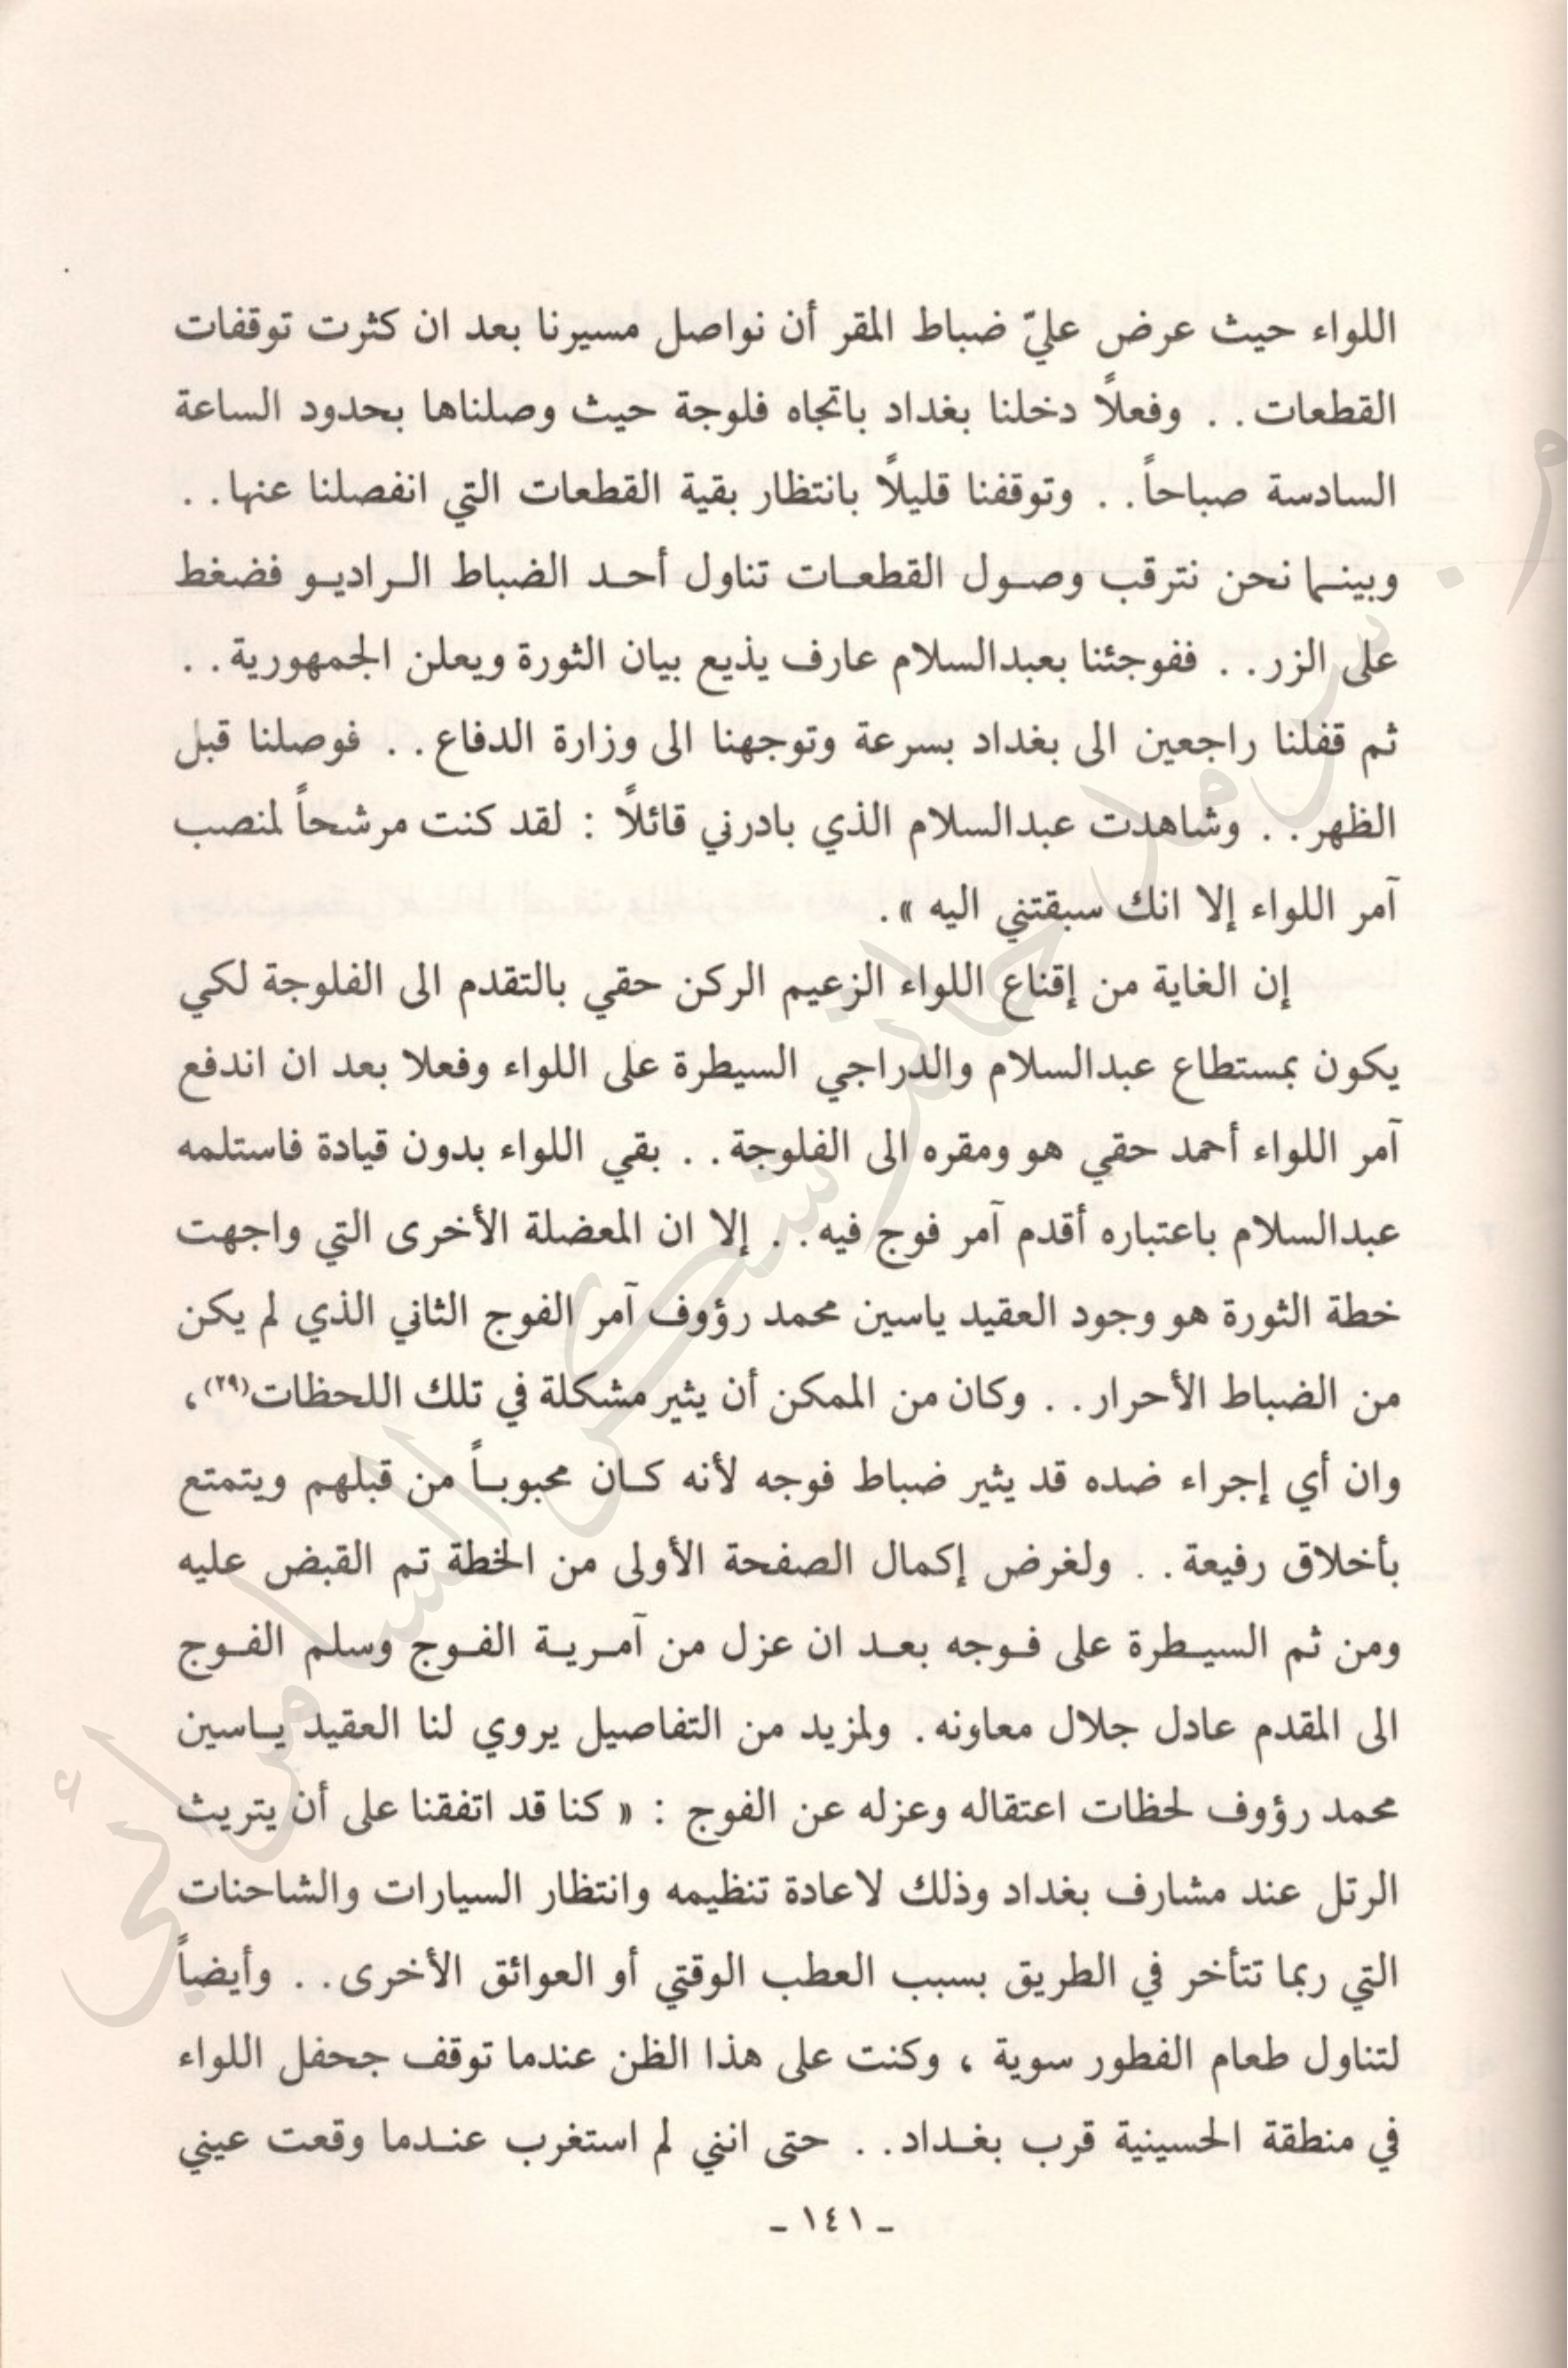 اللواء حيث عرض عليّ ضباط المقر أن نواصل مسيرنا بعد ان كثرت توقفات
القطعات . . وفعلاً دخلنا بغداد باتجاه فلوجة حيث وصلناها بحدود الساعة
السادسة صباحاً . . وتوقفنا قليلاً بانتظار بقية القطعات التي انفصلنا عنها . .
وبينما نحن نترقب وصول القطعات تناول أحد الضباط الراديو فضغط
على الزر . . ففوجئنا بعبدالسلام عارف يذيع بيان الثورة ويعلن الجمهورية . .
ثم قفلنا راجعين الى بغداد بسرعة وتوجهنا الى وزارة الدفاع . . فوصلنا قبل
الظهر . . وشاهدت عبدالسلام الذي بادرني قائلاً : لقد كنت مرشحاً لمنصب
آمر اللواء إلا انك سبقتني اليه » .
إن الغاية من إقناع اللواء الزعيم الركن حقي بالتقدم الى الفلوجة لكي
يكون بمستطاع عبدالسلام والدراجي السيطرة على اللواء وفعلا بعد ان اندفع
آمر اللواء أحمد حقي هو ومقره الى الفلوجة . . بقي اللواء بدون قيادة فاستلمه
عبدالسلام باعتباره أقدم آمر فوج فيه . . إلا ان المعضلة الأخرى التي واجهت
خطة الثورة هو وجود العقيد ياسين محمد رؤوف آمر الفوج الثاني الذي لم يكن
من الضباط الأحرار . . وكان من الممكن أن يثير مشكلة في تلك اللحظات(٢٩) ،
وان أي إجراء ضده قد يثير ضباط فوجه لأنه كان محبوباً من قبلهم ويتمتع
بأخلاق رفيعة . . ولغرض إكمال الصفحة الأولى من الخطة تم القبض عليه
ومن ثم السيطرة على فوجه بعد ان عزل من آمرية الفوج وسلم الفوج
الى المقدم عادل جلال معاونه . ولمزيد من التفاصيل يروي لنا العقيد ياسين
محمد رؤوف لحظات اعتقاله وعزله عن الفوج : « كنا قد اتفقنا على أن يتريث
الرتل عند مشارف بغداد وذلك لاعادة تنظيمه وانتظار السيارات والشاحنات
التي ربما تتأخر في الطريق بسبب العطب الوقتي أو العوائق الأخرى . . وأيضاً
لتناول طعام الفطور سوية ، وكنت على هذا الظن عندما توقف جحفل اللواء
في منطقة الحسينية قرب بغداد . . حتى انني لم استغرب عندما وقعت عيني
ـ ١٤١ ـ